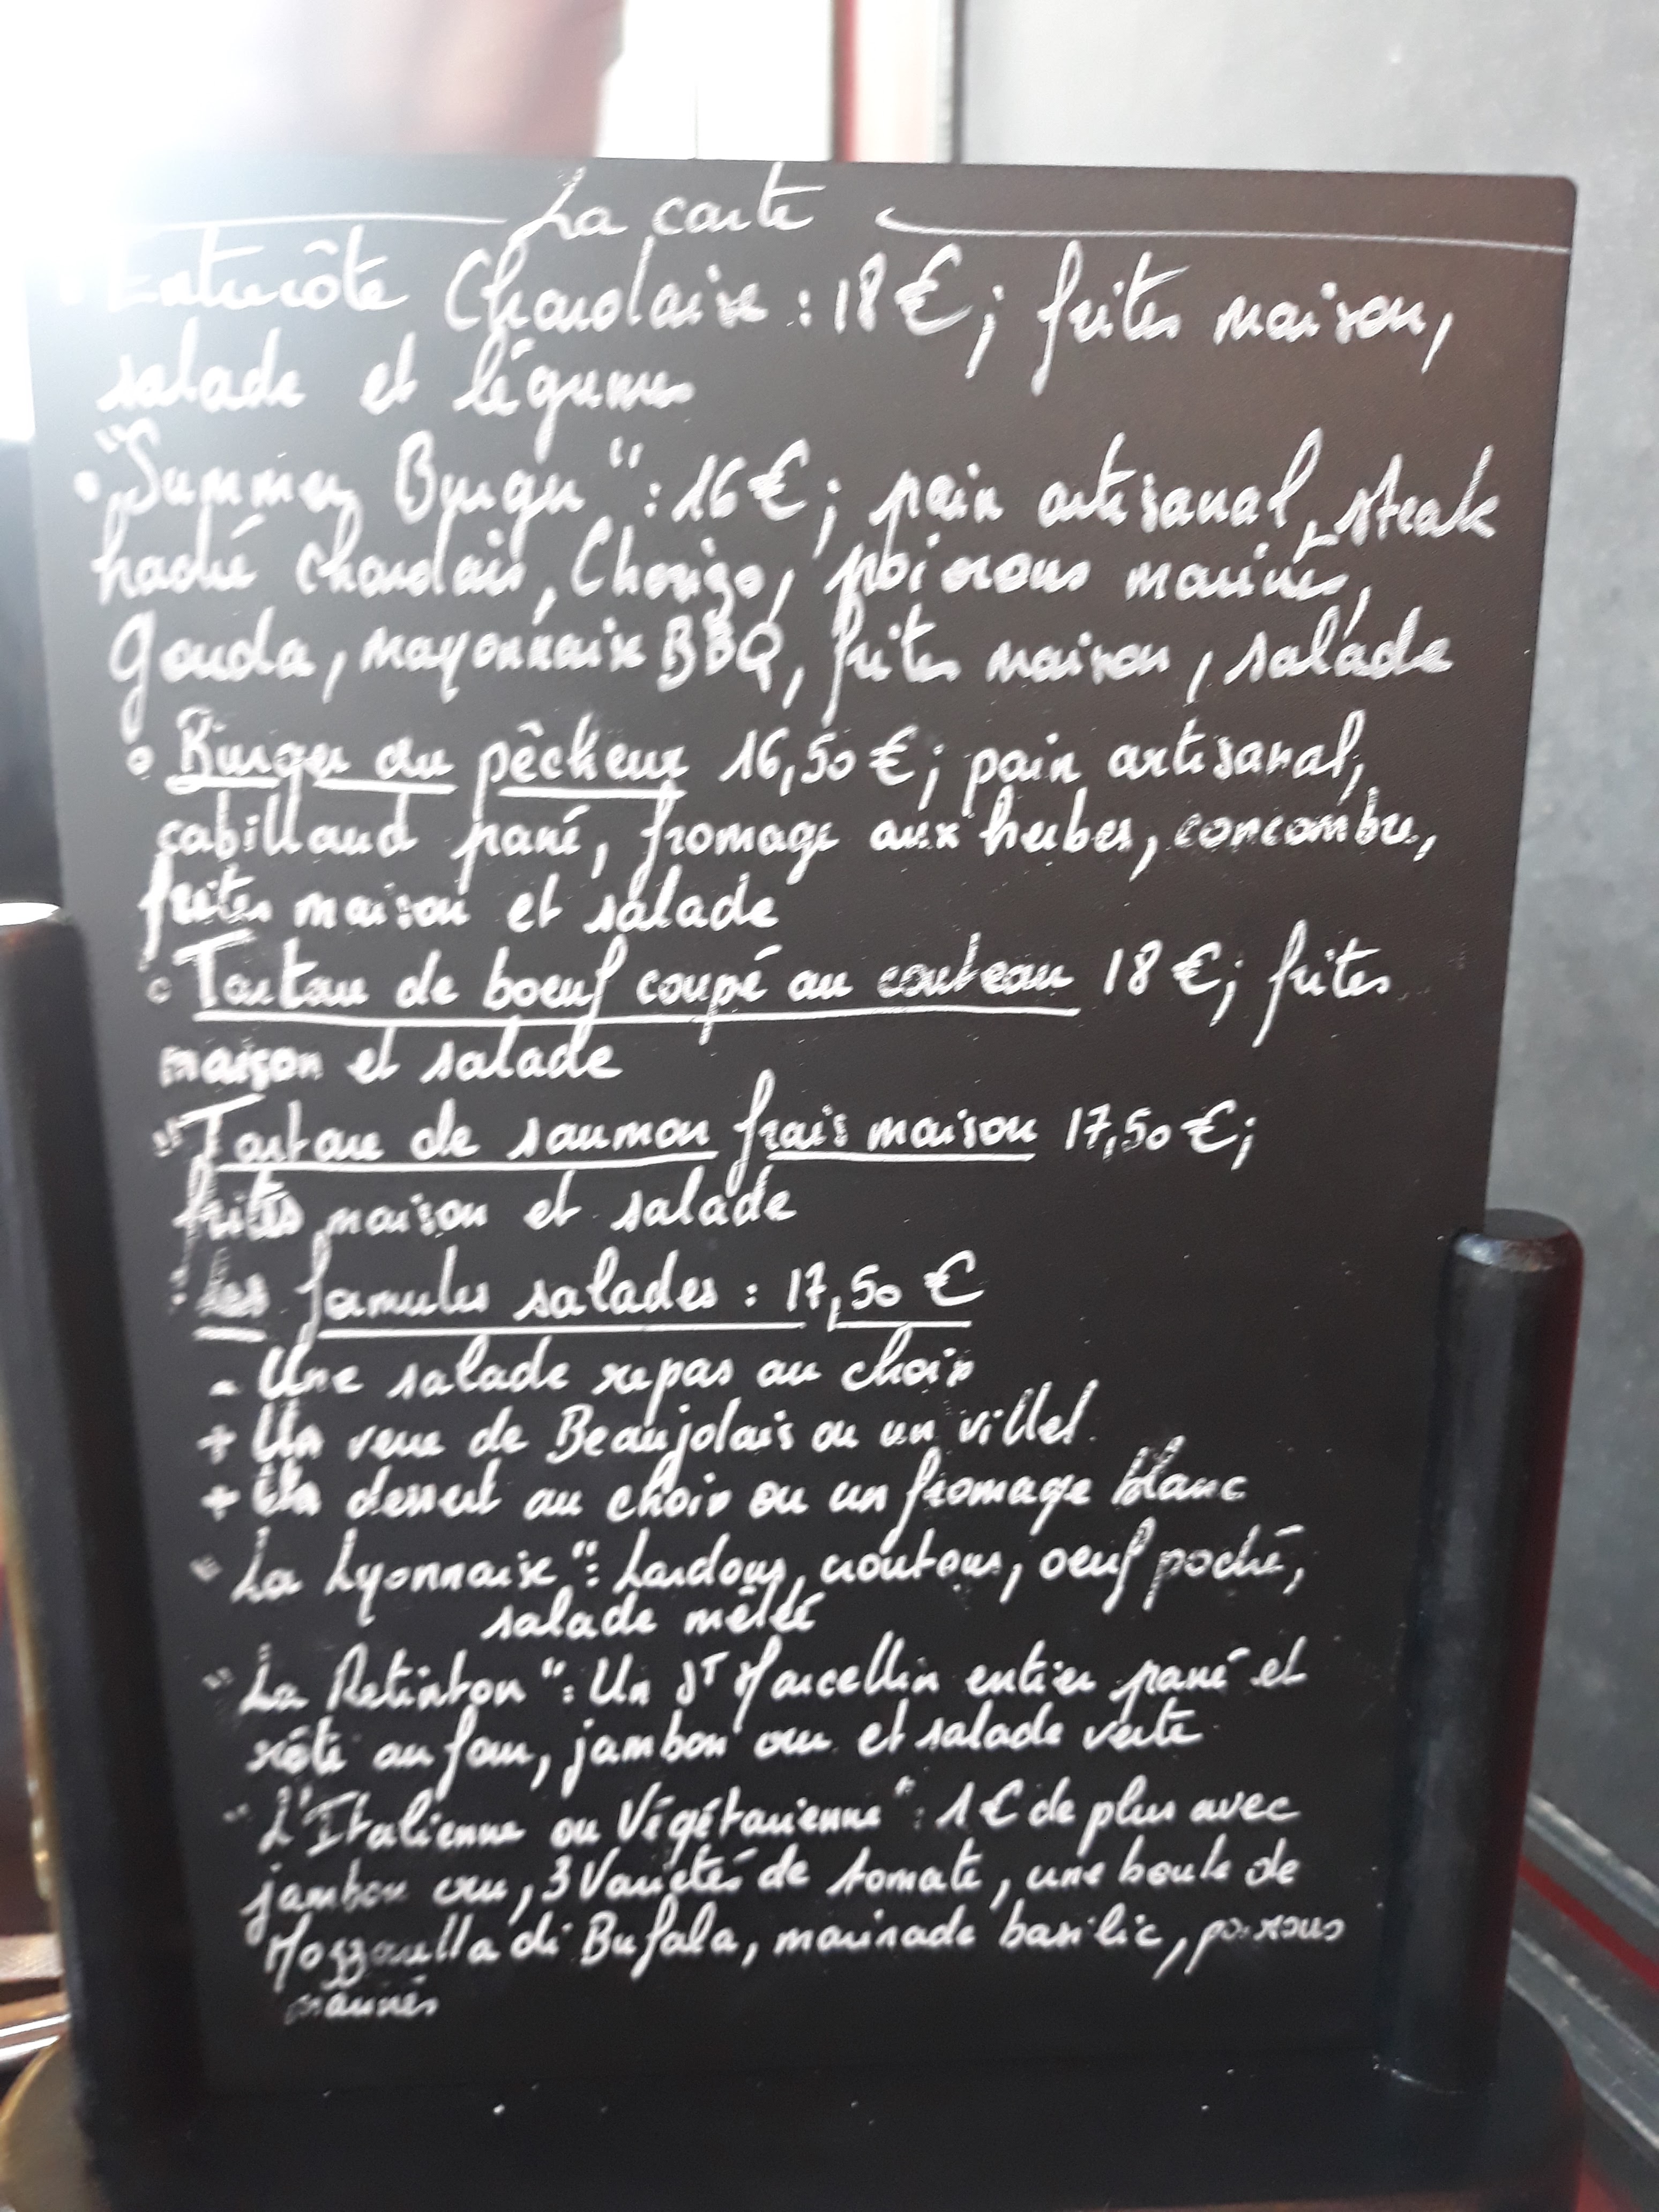 La carte
Entrecôte Charolaise : 18€; frites maison,
salade et légumes
• "Summer Burger" : 16€; pain artisanal, steak
haché charolais, Chorizo, poivrons marinés,
Gouda, mayonnaise BBQ, frites maison, salade
• Burger du pêcheur 16,50€; pain artisanal,
cabillaud pané, fromage aux herbes, concombre,
frites maison et salade
• Tartare de boeuf coupé au couteau 18€; frites
maison et salade
"Tartare de saumon frais maison 17,50€;
frites maison et salade
Les formules salades : 17,50 €
- Une salade repas au choix
+ Un verre de Beaujolais ou un vittel
+ Un dessert au choix ou un fromage blanc
"La Lyonnaise" : Lardons, croutons, oeuf poché,
salade mêlée
"La Retinton" : Un ST Marcellin entier pané et
rôti au four, jambon cru et salade verte
"L'Italienne ou Végétarienne" : 1€ de plus avec
jambon cru, 3 Variétés de tomate, une boule de
Mozzarella di Bufala, marinade basilic, poivrons
marinés